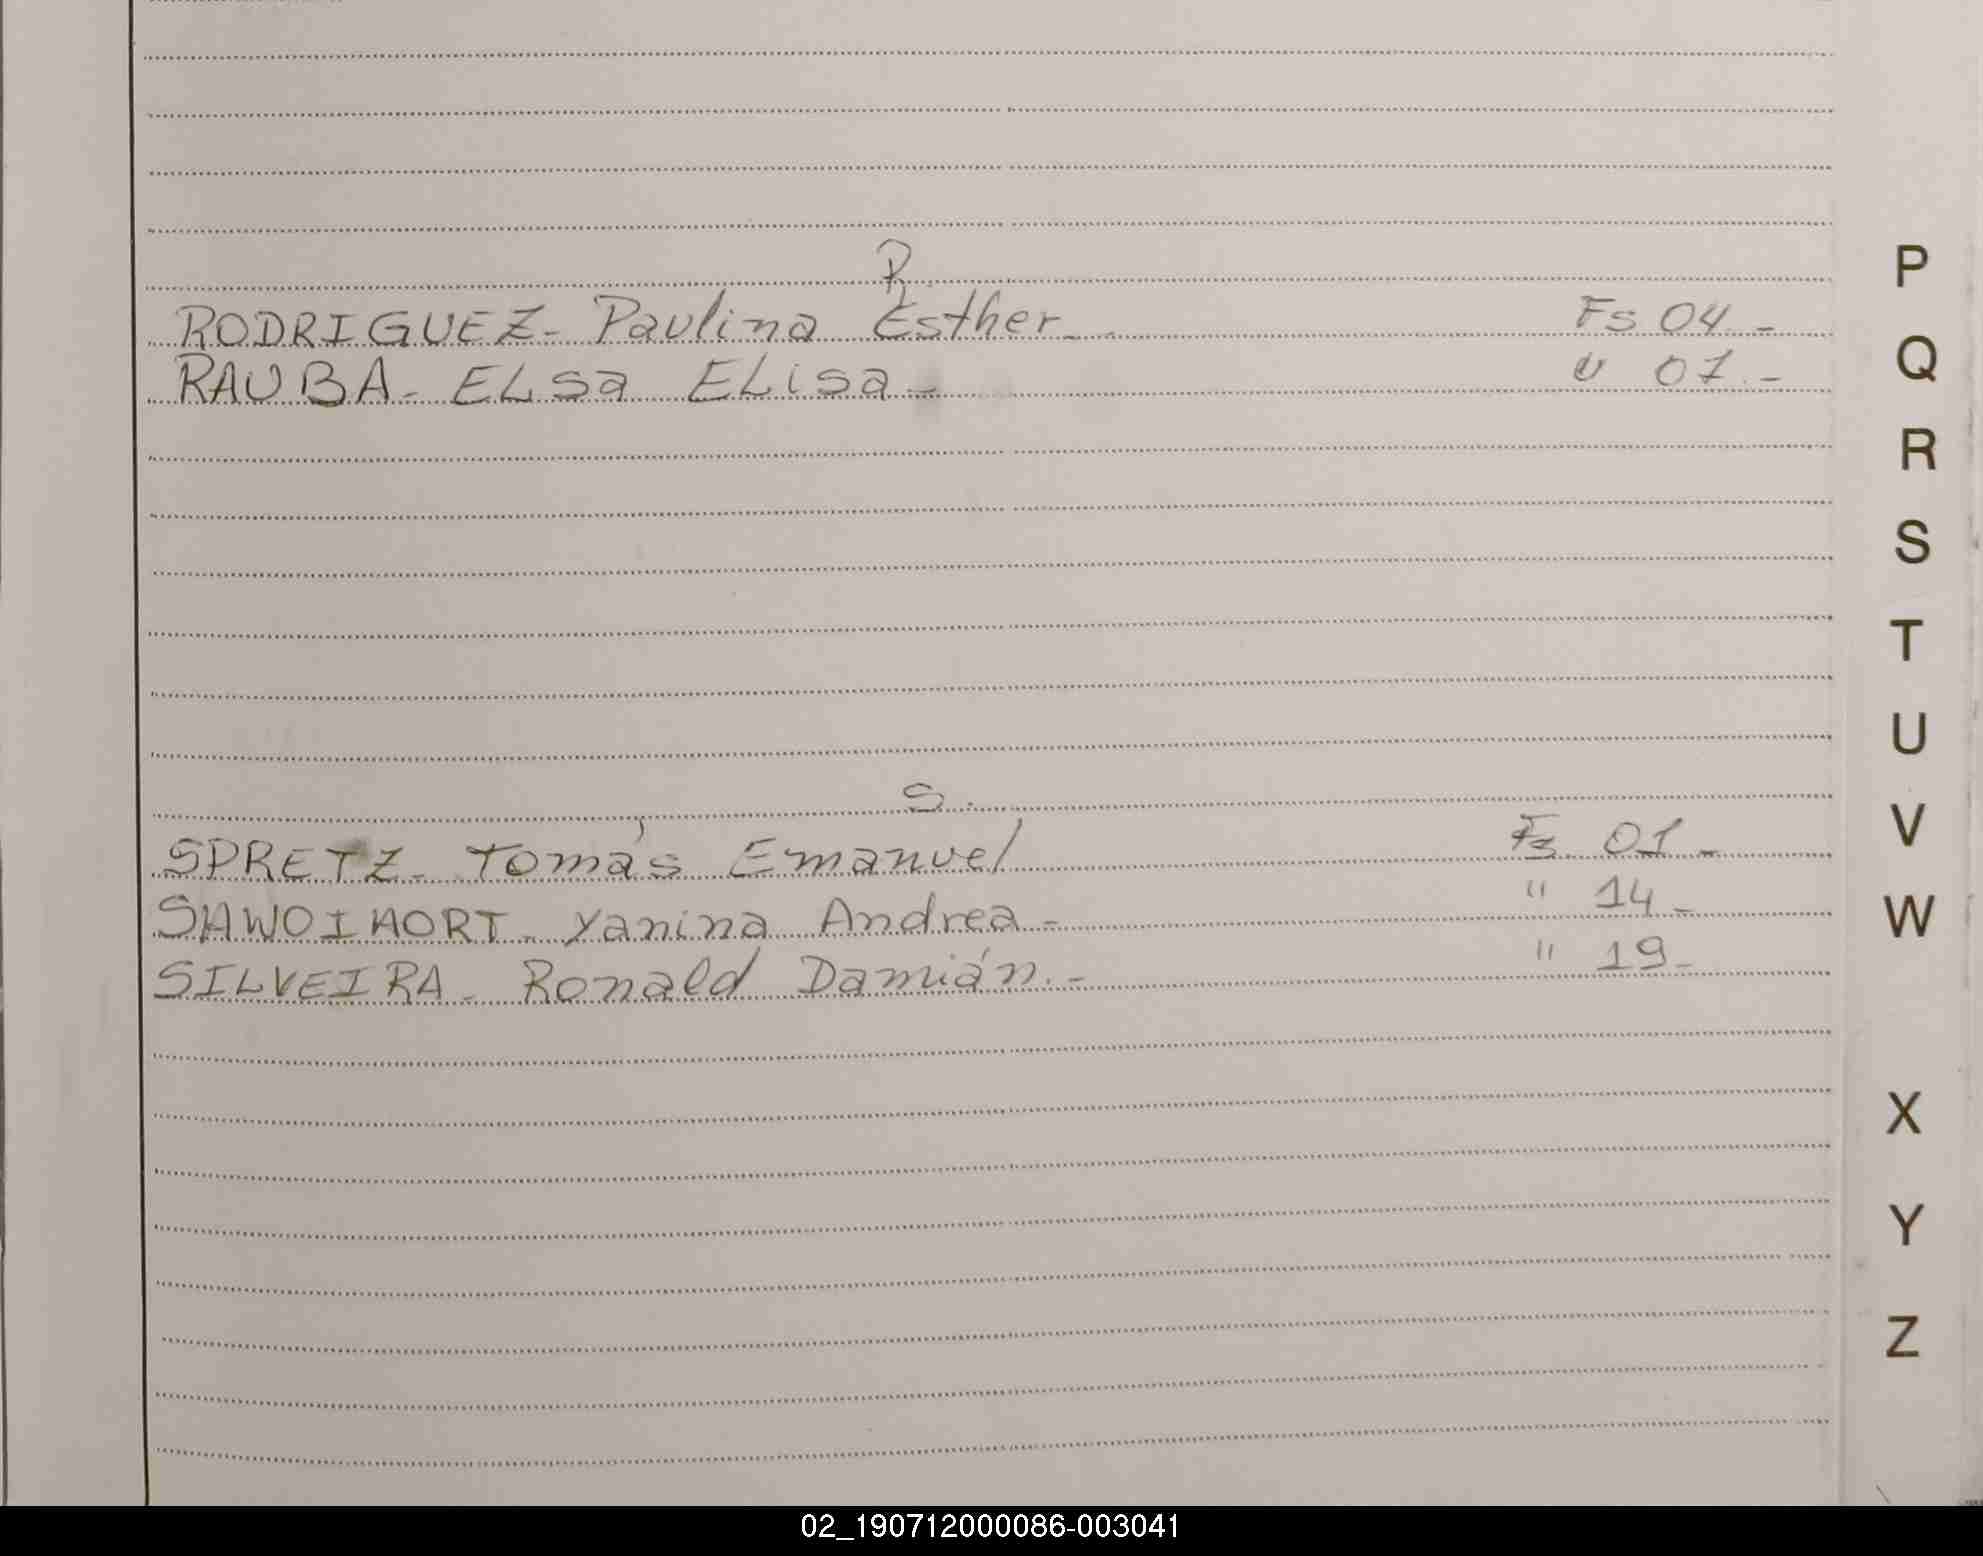 R.
RODRIGUEZ - Paulina Esther - Fs 04 -
RAUBA - ELsa ELisa - " 07 -
S.
SPRETZ - Tomás Emanuel Fs 01 -
SAWOIHORT - Yanina Andrea - " 14 -
SILVEIRA - Ronald Damián. - " 19 -
P
Q
R
S
T
U
V
W
X
Y
Z
02_190712000086-003041